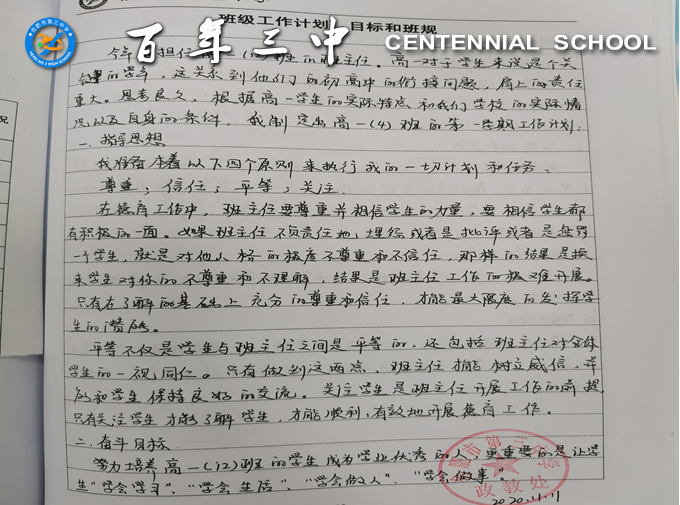 班级工作计划、目标和班规
百年三中
CENTENNIAL SCHOOL
今年 担任 班的班主任。高一对于学生来说是个关
键的学年，这关系到他们的初高中的衔接问题，肩上的责任
重大。思考良久，根据高一学生的实际特点和我们学校的实际情
况以及自身的条件，我制定出高一(4)班的第一学期工作计划：
一、指导思想
我准备本着以下四个原则来执行我的一切计划和任务：
尊重；信任；平等；关注
在德育工作中，班主任要尊重并相信学生的力量，要相信学生都
有积极的一面。如果班主任不负责任地，埋怨或者是批评或者是惩罚
一个学生，就是对他人格的极度不尊重和不信任，那样的结果是换
来学生对你的不尊重和不理解，结果是班主任工作的极难开展。
只有在了解的基础上充分的尊重和信任，才能最大限度的发挥学
生的潜能。
平等不仅是学生与班主任之间是平等的，还包括班主任对全体
学生的一视同仁。只有做到这两点，班主任才能树立威信，并
能和学生保持良好的交流。关注学生是班主任开展工作的前提
只有关注学生才能了解学生，才能顺利，有效地开展德育工作。
二、奋斗目标
努力培养高一(12)班的学生成为学业优秀的人，更重要的是让学
生“学会学习”、“学会生活”、“学会做人”、“学会做事”。
第三中学
政教处
2020.11.11